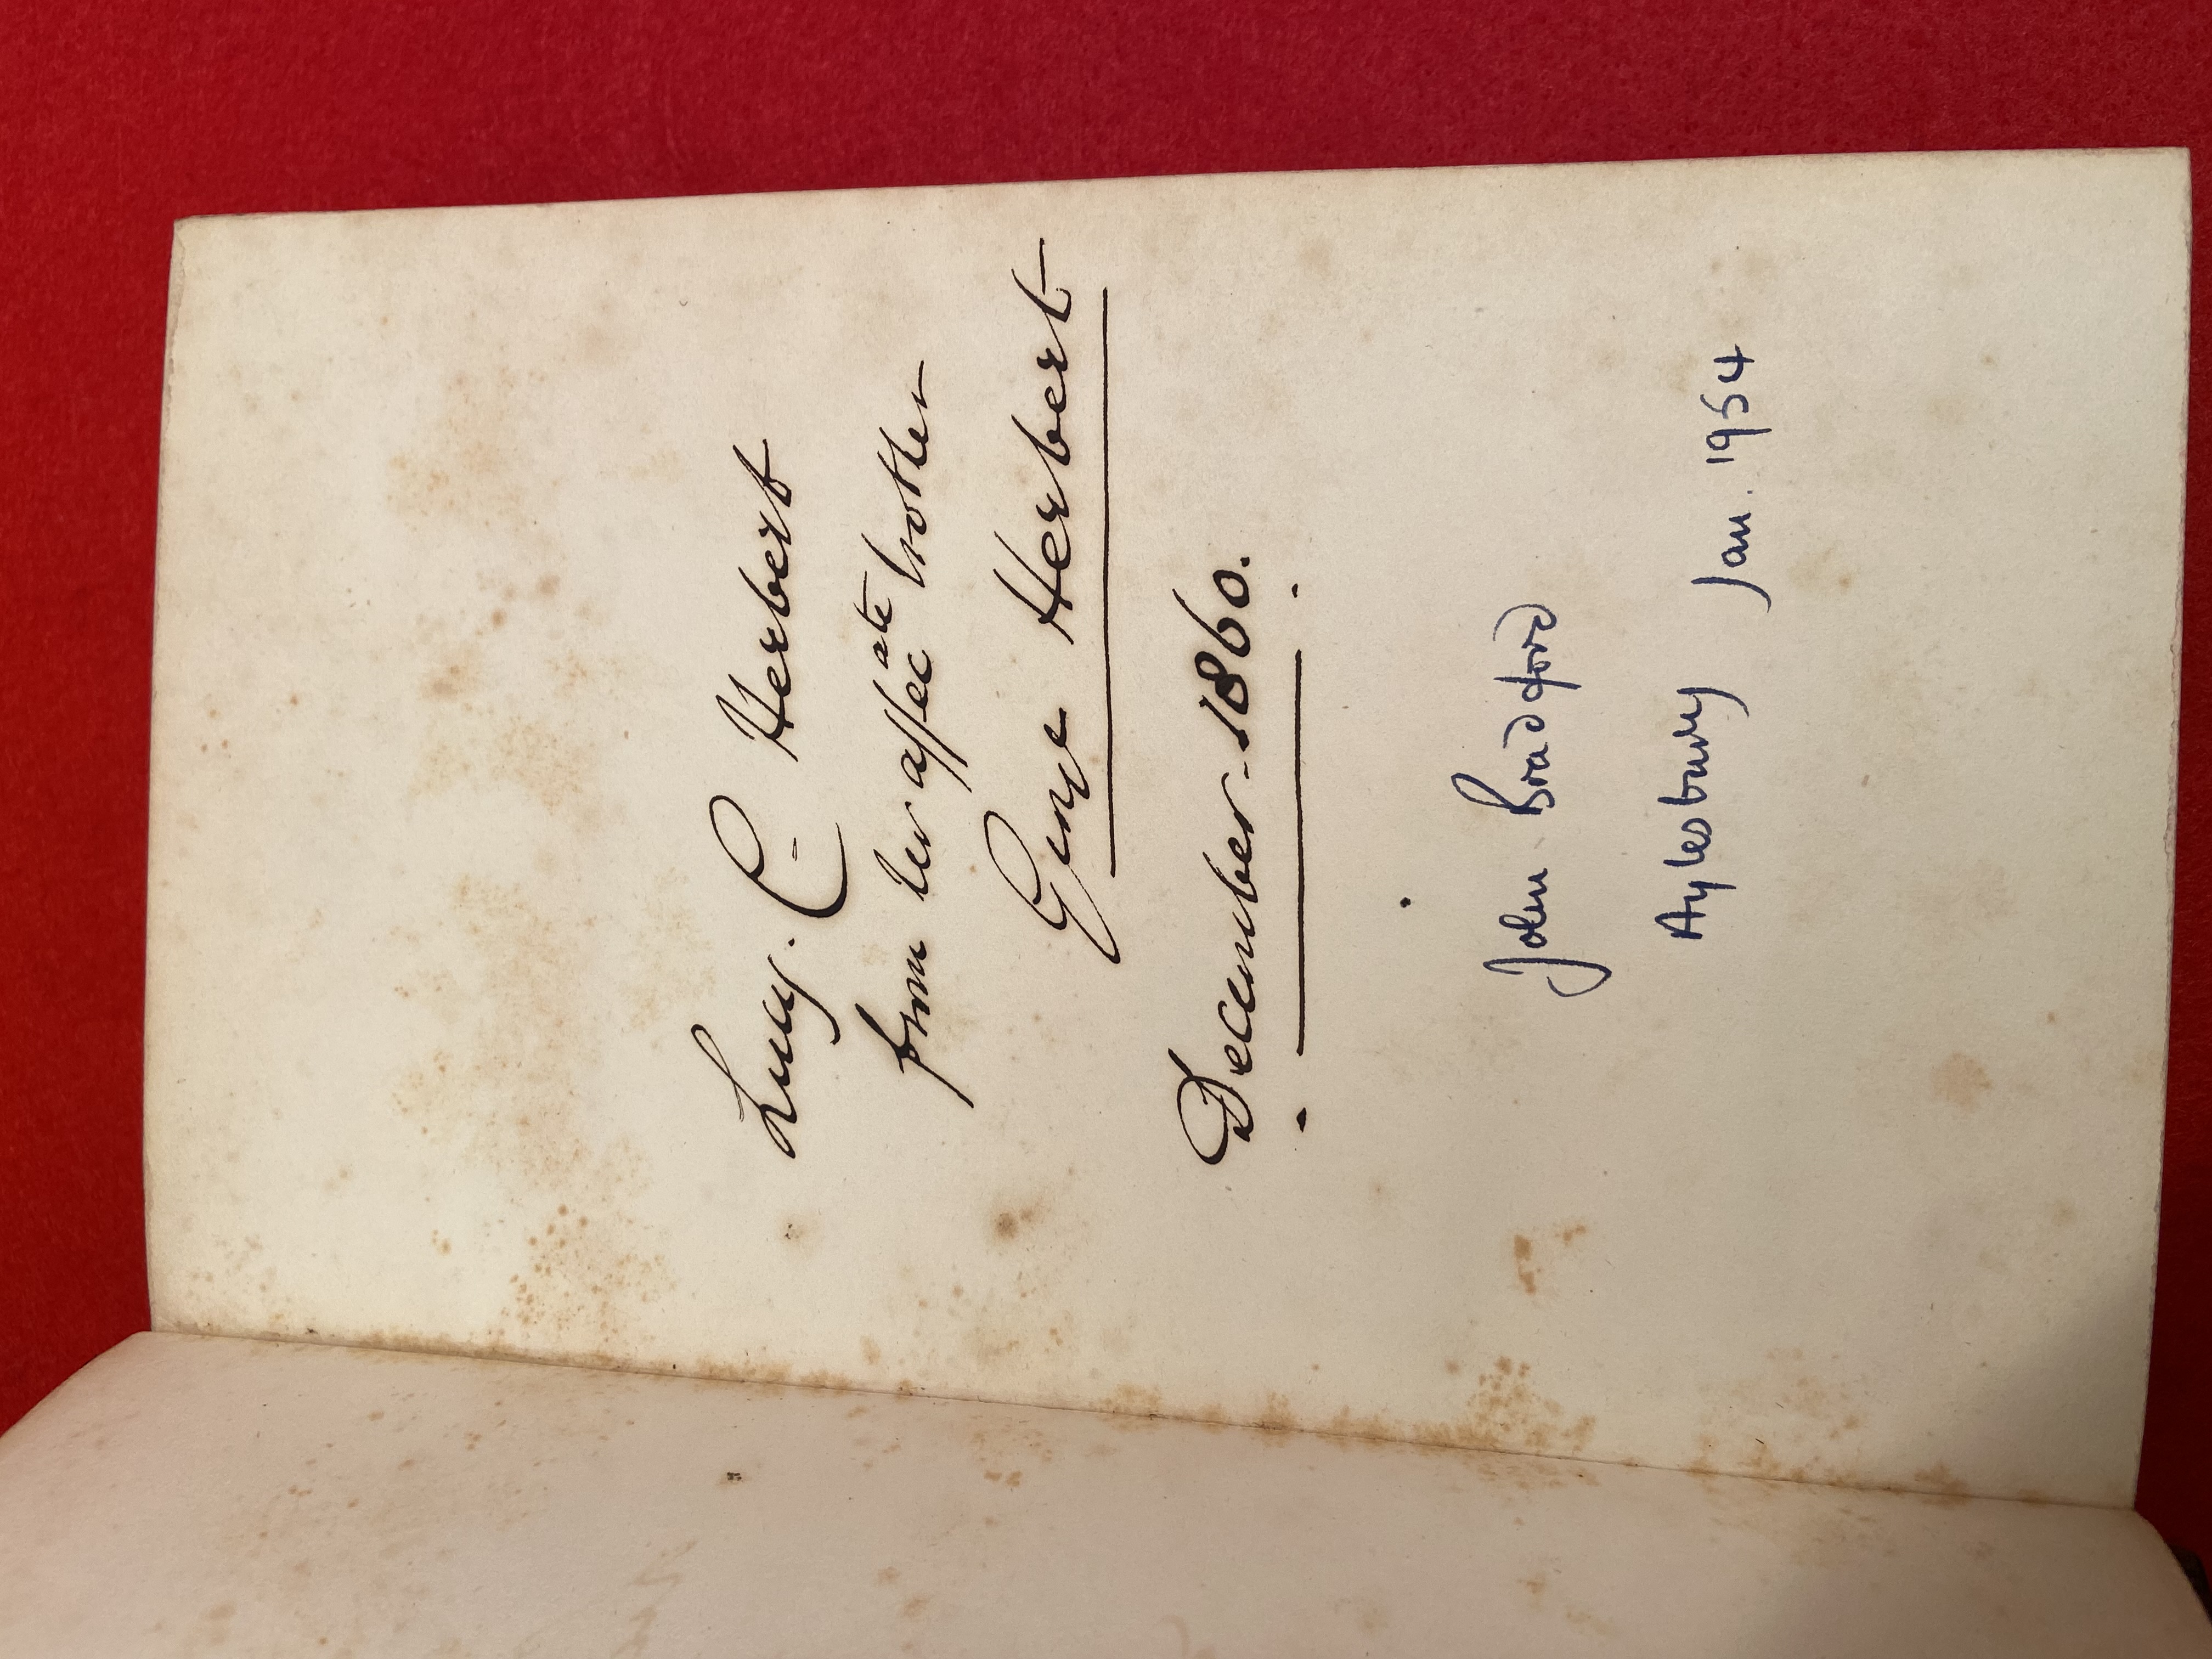 Lucy. C. Herbert
from her affec^ate brother
George Herbert
December - 1860.
John Bradford
Aylesbury Jan. 1954